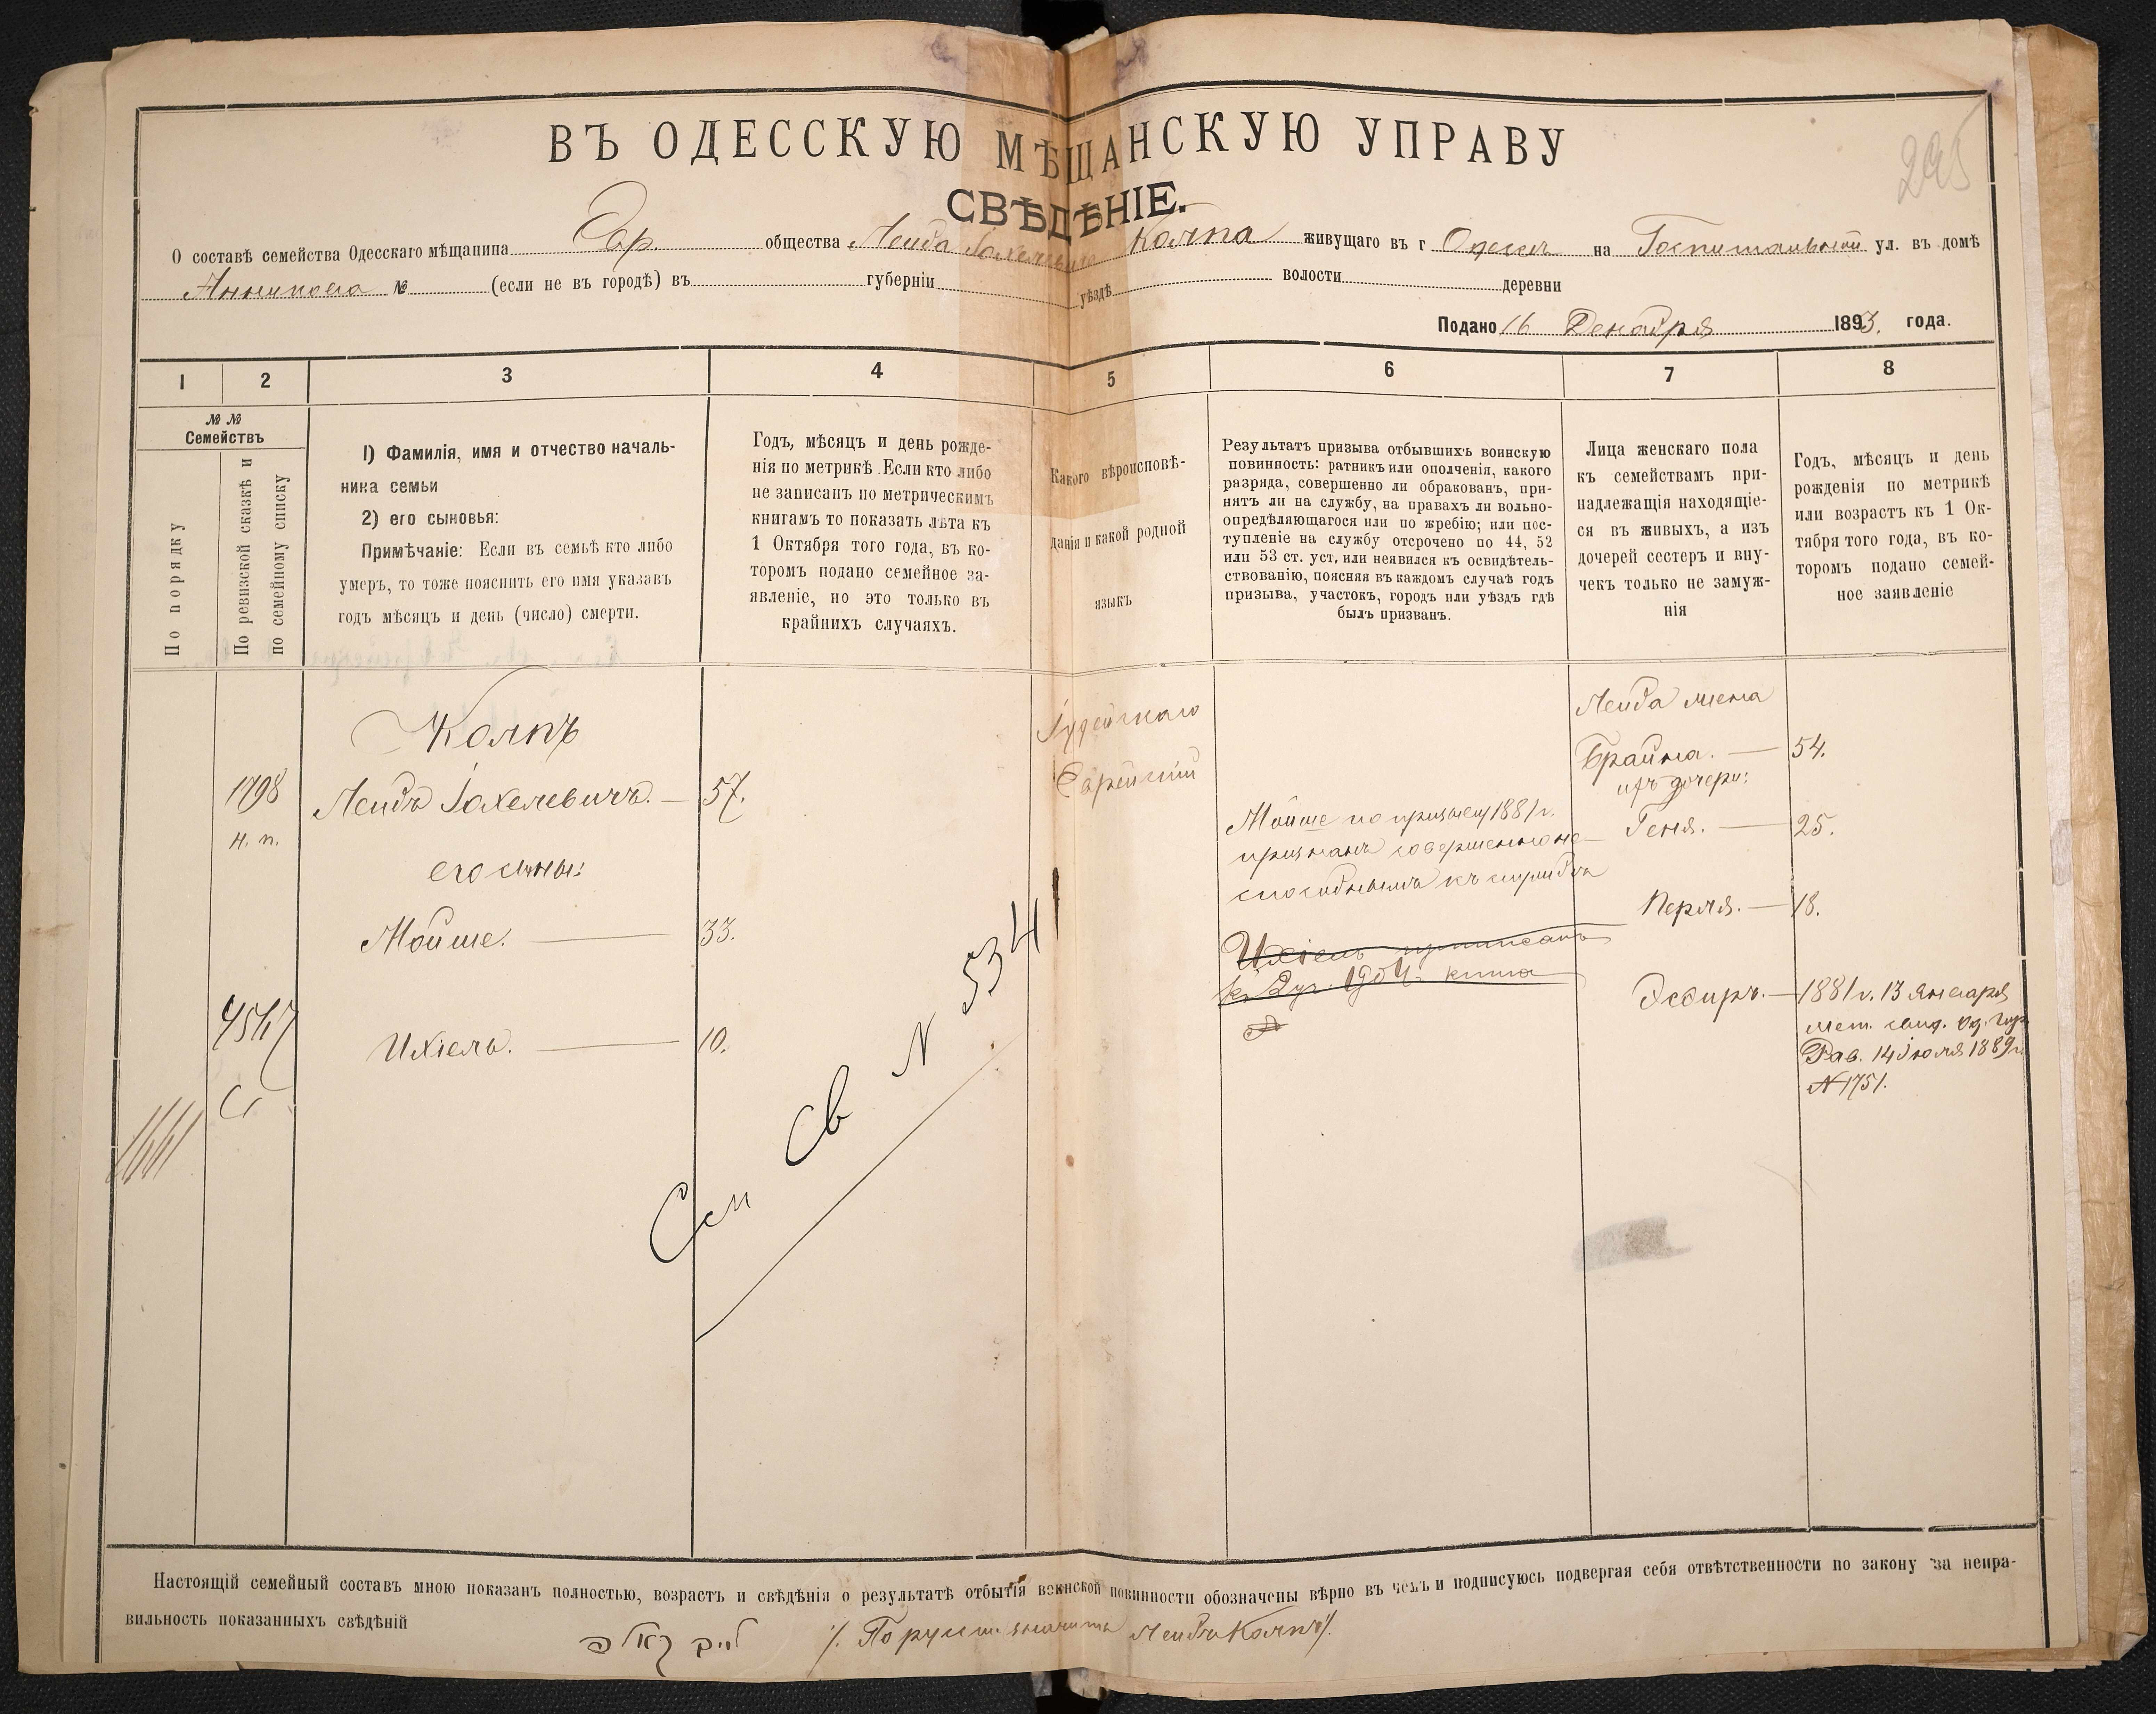 295
ВЪ ОДЕССКУЮ МѢЩАНСКУЮ УПРАВУ
СВѢДѢНІЕ.
О составѣ семейства Одесскаго мѣщанина Евр. общества Лейба Іохелевича Колпа живущаго въ г Одессѣ на Госпитальной ул. въ домѣ
№ (если не въ городѣ) въ губерніи уѣздѣ волости деревни
Подано 16 Декабря 1893. года.
1 2 3 4 5 6 7 8
№ № Семействъ
По порядку
По ревизской сказкѣ и
по семейному списку
1) Фамилія, имя и отчество началь-
ника семьи
2) его сыновья:
Примѣчаніе: Если въ семьѣ кто либо
умеръ, то тоже пояснить его имя указавъ
годъ мѣсяцъ и день (число) смерти.
Годъ, мѣсяцъ и день рожде-
нія по метрикѣ. Если кто либо
не записанъ по метрическимъ
книгамъ то показать лѣта къ
1 Октября того года, въ ко-
торомъ подано семейное за-
явленіе, но это только въ
крайнихъ случаяхъ.
Какого вѣроисповѣ-
данія и какой родной
языкъ
Результатъ призыва отбывшихъ воинскую
повинность: ратникъ или ополченія, какого
разряда, совершенно ли обракованъ, при-
нятъ ли на службу, на правахъ ли вольно-
опредѣляющагося или по жребію; или пос-
тупленіе на службу отсрочено по 44, 52
или 53 ст. уст. или неявился къ освидѣтель-
ствованію, поясняя въ каждомъ случаѣ годъ
призыва, участокъ, городъ или уѣздъ гдѣ
былъ призванъ.
Лица женскаго пола
къ семействамъ при-
надлежащія находящіе-
ся въ живыхъ, а изъ
дочерей сестеръ и вну-
чекъ только не замуж-
нія
Годъ, мѣсяцъ и день
рожденія по метрикѣ
или возрастъ къ 1 Ок-
тября того года, въ ко-
торомъ подано семей-
ное заявленіе
Колпъ
1798
н. п.
Лейбъ Іохелевичъ. — 57.
его сыны:
Мойше. — 33.
Ихіель. — 10.
1661
См св N 534
Іудейскаго
Еврейскій
Мойше по призыву 1881 г.
признанъ совершенно не-
способнымъ къ службѣ
Ихіель приписанъ
Лейба жена
Брайна. — 54.
ихъ дочери:
Геня. — 25.
Перля. — 18.
Эсѳирь. — 1881 г. 13 Января
мет. свид. Од. Гор.
Рав. 14 Іюля 1889 г.
N 1751.
Настоящій семейный составъ мною показанъ полностью, возрастъ и свѣдѣнія о результатѣ отбытія воинской повинности обозначены вѣрно въ чемъ и подписуюсь подвергая себя отвѣтственности по закону за непра-
вильность показанныхъ свѣдѣній
לייב קאלפ /. По русски значитъ Лейбъ Колпъ /.